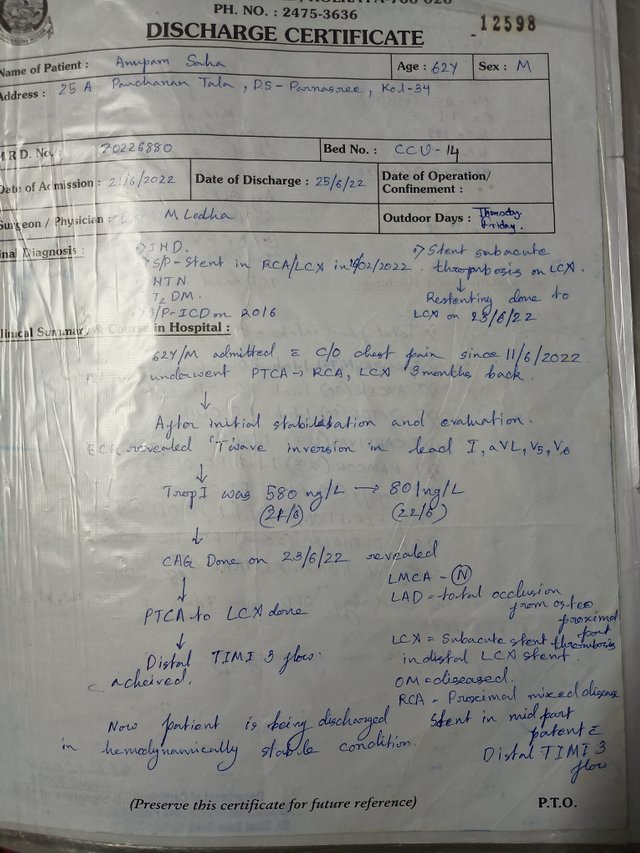 KOLKATA-700 026
PH. NO. : 2475-3636
DISCHARGE CERTIFICATE
12598
Name of Patient : Anupam Saha
Age : 62Y
Sex : M
Address : 25 A Panchanan Tala, P.S - Parnasree, Kol-34
M.R.D. No. : 20226880
Bed No. : CCU-14
Date of Admission : 21/6/2022
Date of Discharge : 25/6/22
Date of Operation/
Confinement :
Surgeon / Physician : M Lodha
Outdoor Days : Thursday
Friday.
Final Diagnosis : IHD.
S/P-Stent in RCA/LCX in /02/2022.
HTN
T2 DM.
S/P-ICD on 2016
Stent subacute
thrombosis on LCX.
↓
Restenting done to
LCX on 23/6/22
Clinical Summary & Course in Hospital :
62Y/M admitted c̄ C/O chest pain since 11/6/2022
underwent PTCA → RCA, LCX 3months back.
↓
After initial stabilisation and evaluation.
ECG revealed 'T' wave inversion in lead I, aVL, V5, V6
↓
Trop I was 580 ng/L → 801ng/L
(21/6) (22/6)
↓
CAG Done on 23/6/22 revealed
LMCA - N
LAD - total occlusion
from osteo
proximal
part
LCX = Subacute stent thrombosis
in distal LCX stent.
OM = diseased.
RCA - Proximal mixed disease
Stent in mid part
patent c̄
Distal TIMI 3
flow
↓
PTCA to LCX done
↓
Distal TIMI 3 flow.
acheived.
Now patient is being discharged
in hemodynamically stable condition.
(Preserve this certificate for future reference)
P.T.O.